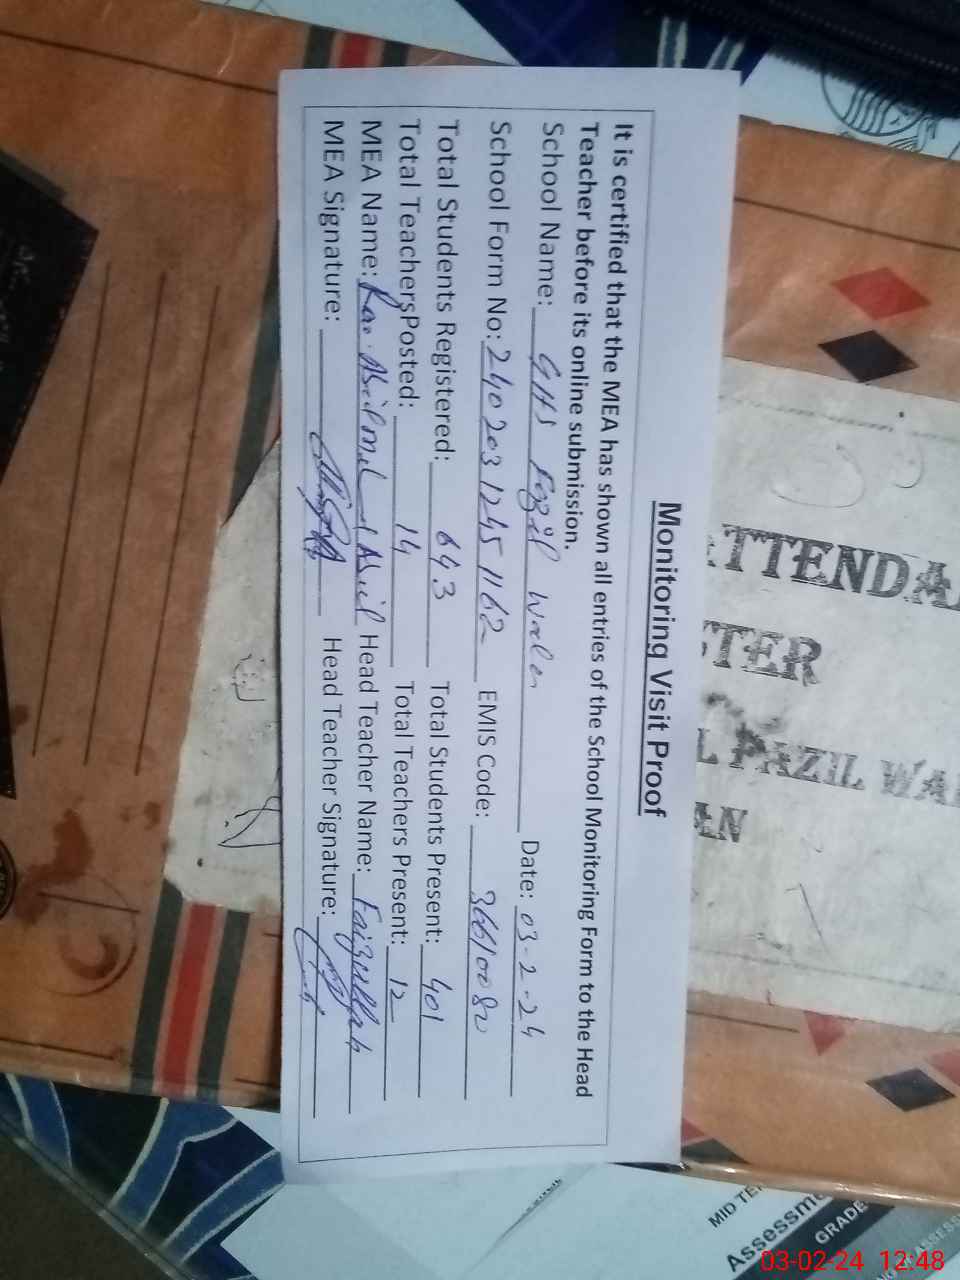 Monitoring Visit Proof
It is certified that the MEA has shown all entries of the School Monitoring Form to the Head
Teacher before its online submission.
School Name: GHS Fazil Wala Date: 03-2-24
School Form No: 2402031245 1162 EMIS Code: 36610080
Total Students Registered: 643 Total Students Present: 401
Total Teachers Posted: 14 Total Teachers Present: 12
MEA Name: Rao Head Teacher Name: Faizullah
MEA Signature: Head Teacher Signature:
TTENDA
TER
L FAZIL WA
AN
MID TE
Assessme
GRADE
03-02-24 12:48